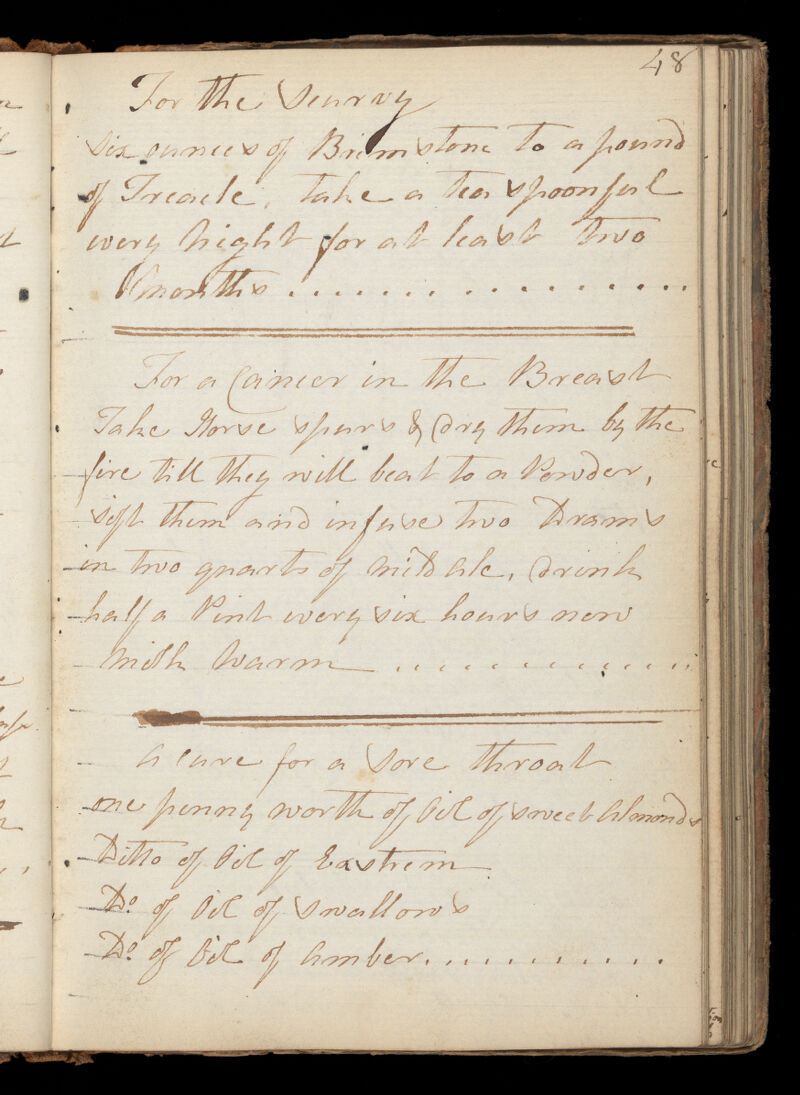 48
For the Scurvy
six ounces of Brimstone to a pound
of Treacle, take a tea spoonful
every Night for at least two
Months
For a Cancer in the Breast
Take Horse spurs & dry them by the
fire till they will beat to a Powder,
sift them and infuse two Drams
in two quarts of Mild Ale, drink
half a Pint every six hours new
Milk Warm
A Cure for a Sore throat
one penny worth of Oil of sweet Almonds
Ditto of Oil of Eastrem
Do. of Oil of Swallows
Do. of Oil of Amber